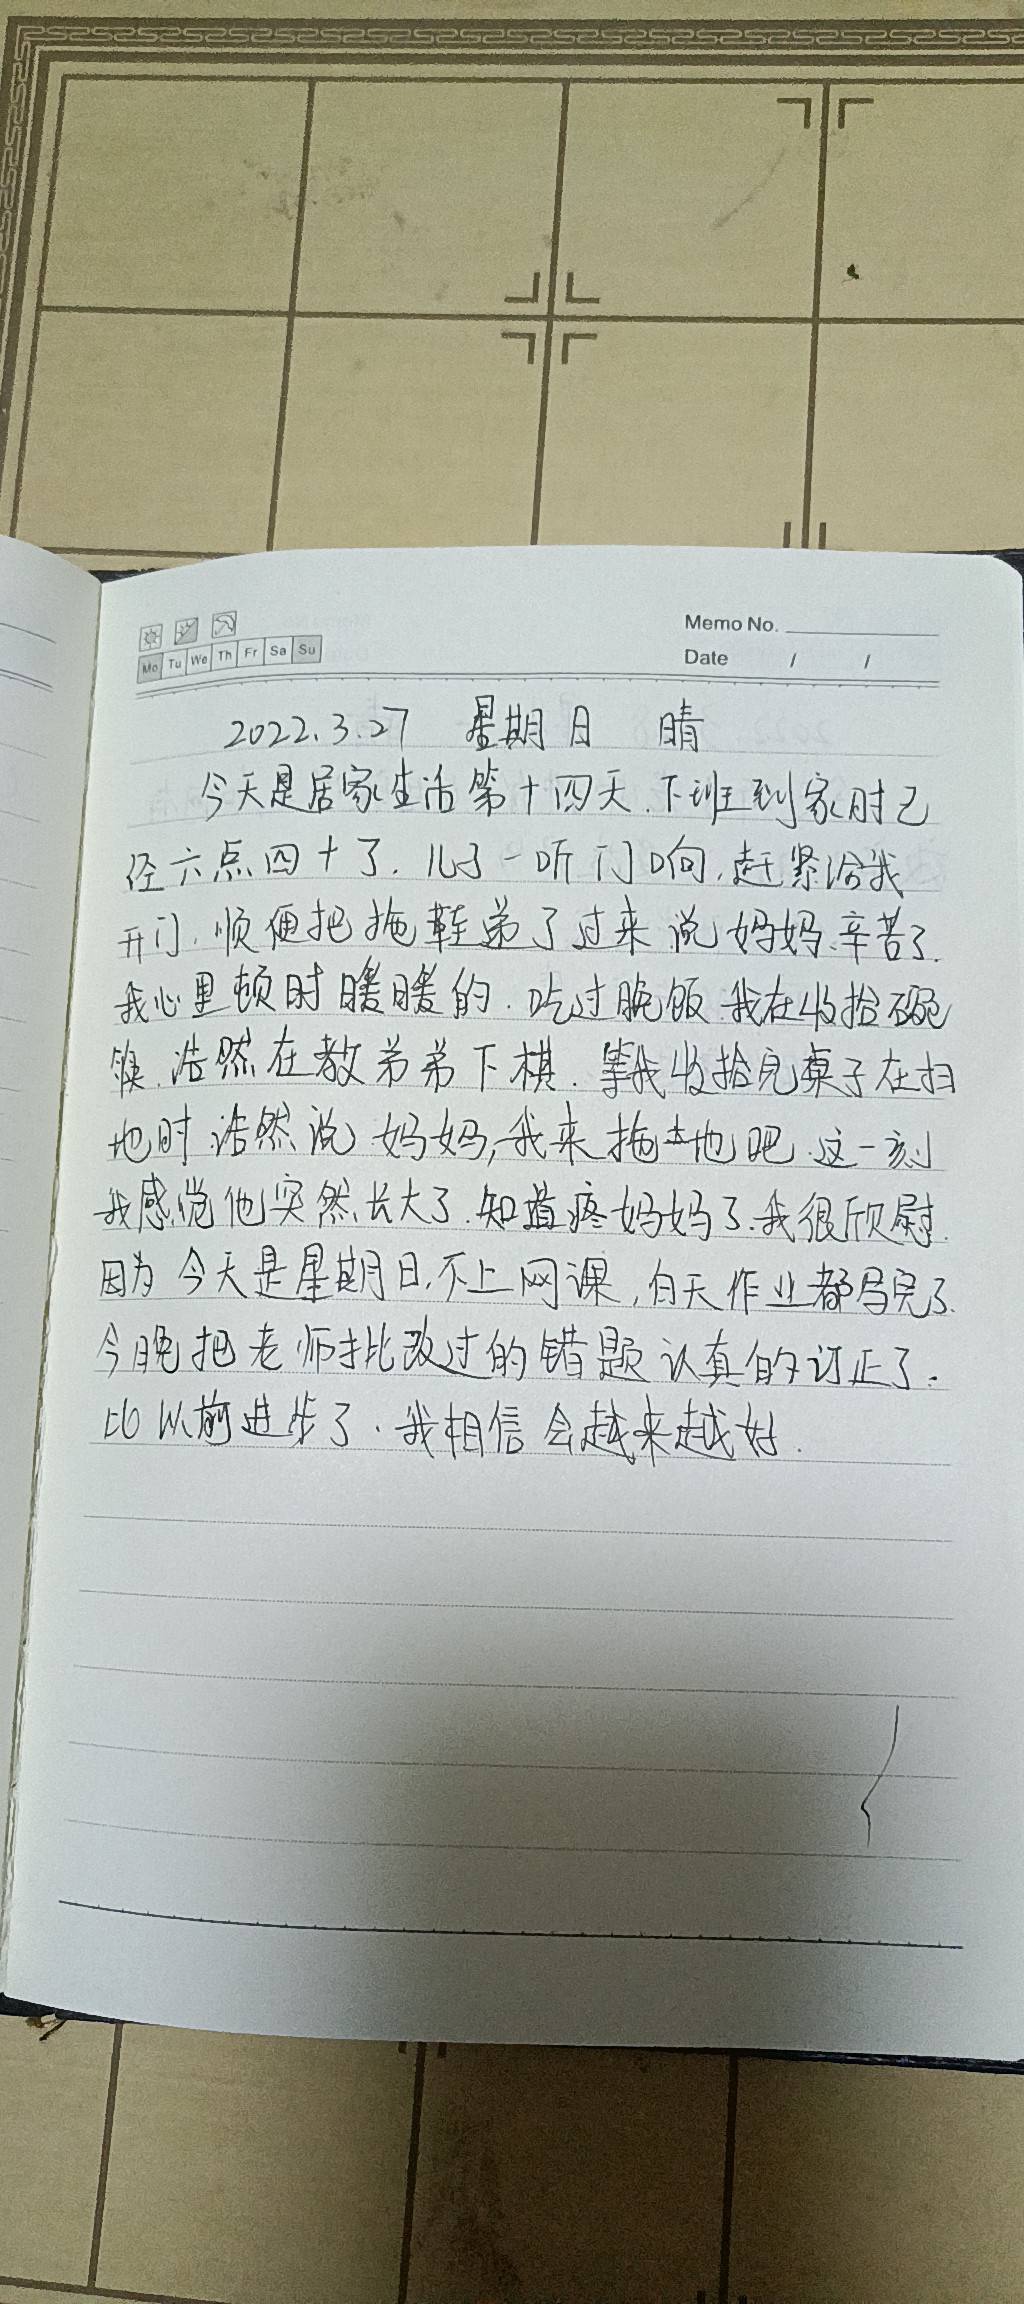 Memo No.
Mo Tu We Th Fr Sa Su
Date / /
2022.3.27 星期日 晴
今天是居家生活第十四天.下班到家时已
经六点四十了.儿子一听门响,赶紧给我
开门.顺便把拖鞋递了过来说妈妈.辛苦了.
我心里顿时暖暖的.吃过晚饭.我在收拾碗
筷.浩然在教弟弟下棋.等我收拾完桌子在扫
地时.浩然说妈妈,我来拖地吧.这一刻
我感觉他突然长大了.知道疼妈妈了.我很欣慰.
因为今天是星期日,不上网课,白天作业都写完了.
今晚把老师批改过的错题认真的订正了.
比以前进步了.我相信会越来越好.